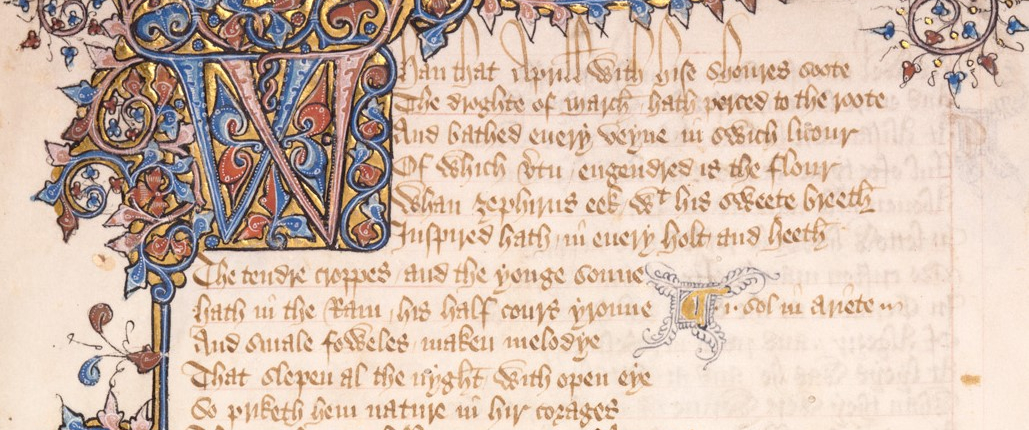 Whan that Aprill with hise shoures soote
The droghte of march hath perced to the roote
And bathed euery veyne in swich licour
Of which vtu engendred is the flour
Whan zephirus eek wt his sweete breeth
Inspired hath in euery holt and heeth
The tendre croppes and the yonge sonne
hath in the Ram his half cours yronne
.i. sol in ariete
And smale foweles maken melodye
That slepen al the nyght with open eye
So priketh hem nature in hir corages